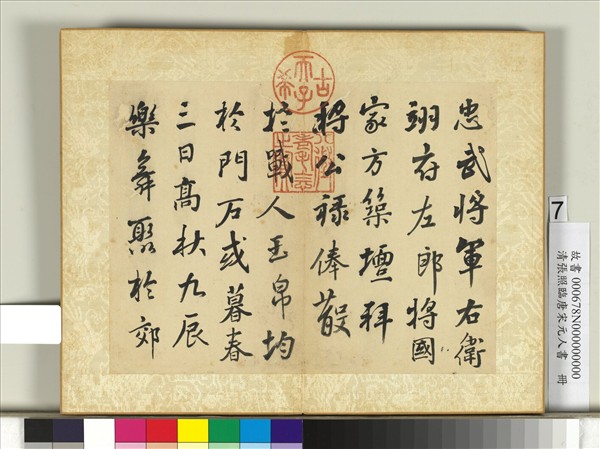 忠武將軍右衛
翊府左郎將國
家方築壇拜
將公祿俸散
於戰人玉帛均
於門石或暮春
三日高秋九辰
樂舞聚於郊
古希天子
7
故書 000678N000000000
清張照臨唐宋元人書 冊